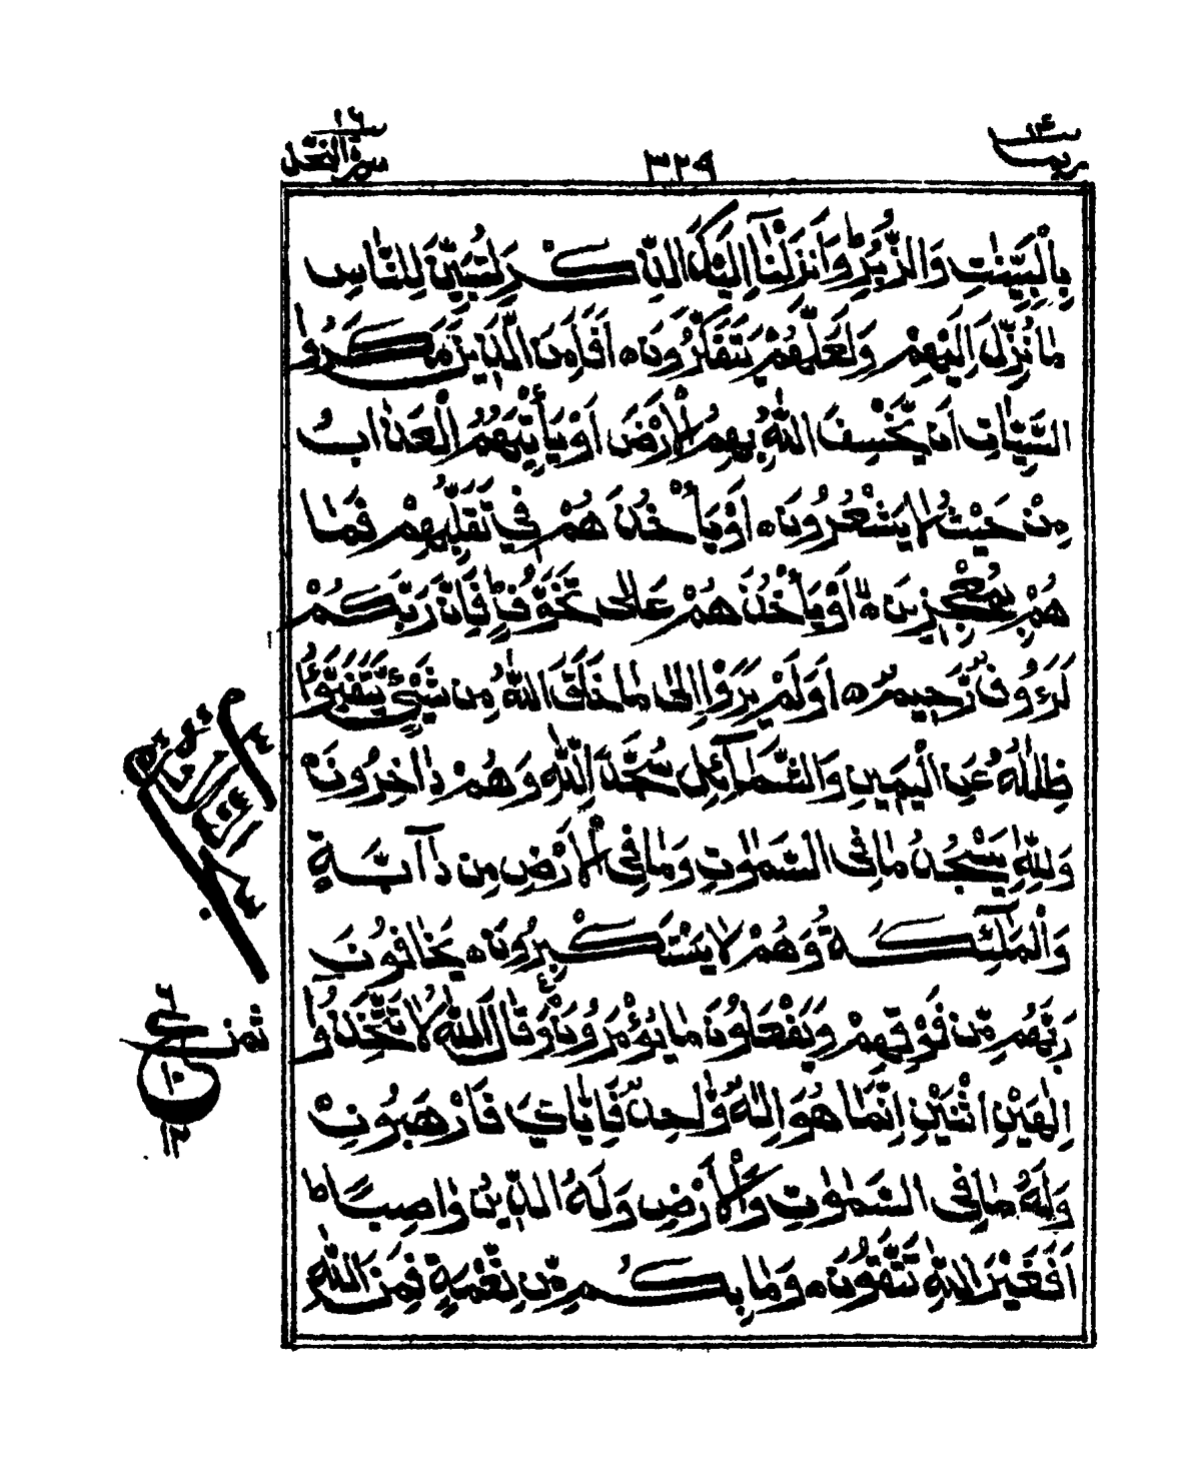 ربما ١٤
٣٢٩
سورة النحل ١٦
بِالْبَيِّنٰتِ وَالزُّبُرِ ؕ وَاَنْزَلْنَاۤ اِلَيْكَ الذِّكْرَ لِتُبَيِّنَ لِلنَّاسِ
مَا نُزِّلَ اِلَيْهِمْ وَلَعَلَّهُمْ يَتَفَكَّرُوْنَ ۝ اَفَاَمِنَ الَّذِيْنَ مَكَرُوا
السَّيِّاٰتِ اَنْ يَّخْسِفَ اللّٰهُ بِهِمُ الْاَرْضَ اَوْ يَأْتِيَهُمُ الْعَذَابُ
مِنْ حَيْثُ لَا يَشْعُرُوْنَ ۝ اَوْ يَأْخُذَهُمْ فِيْ تَقَلُّبِهِمْ فَمَا
هُمْ بِمُعْجِزِيْنَ ۝ اَوْ يَأْخُذَهُمْ عَلٰى تَخَوُّفٍ ؕ فَاِنَّ رَبَّكُمْ
لَرَءُوْفٌ رَّحِيْمٌ ۝ اَوَلَمْ يَرَوْا اِلٰى مَا خَلَقَ اللّٰهُ مِنْ شَيْءٍ يَّتَفَيَّؤُا
ظِلٰلُهٗ عَنِ الْيَمِيْنِ وَالشَّمَآئِلِ سُجَّدًا لِّلّٰهِ وَهُمْ دَاخِرُوْنَ ۝
وَلِلّٰهِ يَسْجُدُ مَا فِى السَّمٰوٰتِ وَمَا فِى الْاَرْضِ مِنْ دَآبَّةٍ
وَّالْمَلٰٓئِكَةُ وَهُمْ لَا يَسْتَكْبِرُوْنَ ۝ يَخَافُوْنَ
رَبَّهُمْ مِّنْ فَوْقِهِمْ وَيَفْعَلُوْنَ مَا يُؤْمَرُوْنَ ۝ وَقَالَ اللّٰهُ لَا تَتَّخِذُوْا
اِلٰهَيْنِ اثْنَيْنِ اِنَّمَا هُوَ اِلٰهٌ وَّاحِدٌ فَاِيَّايَ فَارْهَبُوْنِ ۝
وَلَهٗ مَا فِى السَّمٰوٰتِ وَالْاَرْضِ وَلَهُ الدِّيْنُ وَاصِبًا ؕ
اَفَغَيْرَ اللّٰهِ تَتَّقُوْنَ ۝ وَمَا بِكُمْ مِّنْ نِّعْمَةٍ فَمِنَ اللّٰهِ
السجدة الثالثة
ثمن
٦
ع
١٠
١٢